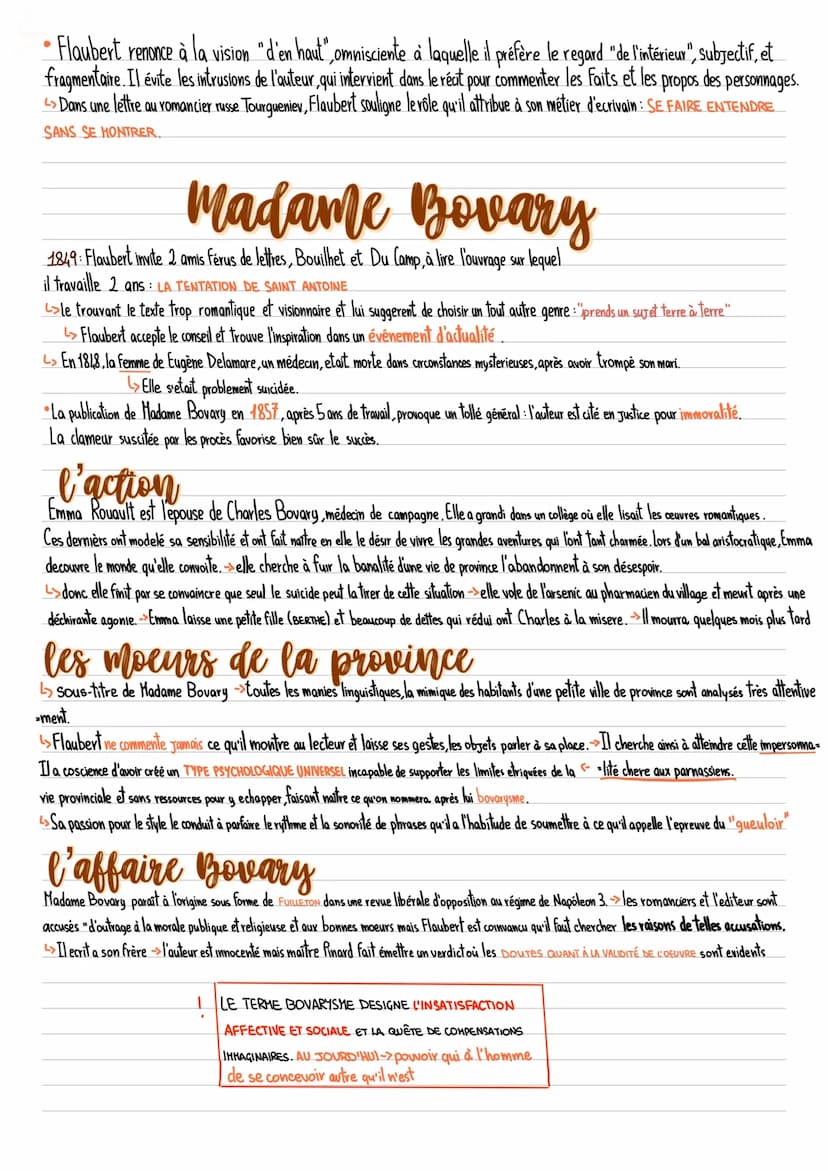 • Flaubert renonce à la vision "d'en haut", omnisciente à laquelle il préfère le regard "de l'intérieur", subjectif, et
fragmentaire. Il évite les intrusions de l'auteur, qui intervient dans le récit pour commenter les faits et les propos des personnages.
↳ Dans une lettre au romancier russe Tourgueniev, Flaubert souligne le rôle qu'il attribue à son métier d'ecrivain : SE FAIRE ENTENDRE
SANS SE MONTRER.
Madame Bovary
1849: Flaubert invite 2 amis férus de lettres, Bouilhet et Du Camp, à lire l'ouvrage sur lequel
il travaille 2 ans : LA TENTATION DE SAINT ANTOINE
↳ le trouvant le texte trop romantique et visionnaire et lui suggerent de choisir un tout autre genre : "prends un sujet terre à terre"
↳ Flaubert accepte le conseil et trouve l'inspiration dans un événement d'actualité.
↳ En 1848, la femme de Eugène Delamare, un médecin, etait morte dans circonstances mysterieuses, après avoir trompé son mari.
↳ Elle s'etait problement suicidée.
• La publication de Madame Bovary en 1857, après 5 ans de travail, provoque un tollé général : l'auteur est cité en justice pour immoralité.
La clameur suscitée par les procès favorise bien sûr le succès.
l'action
Emma Rouault est l'epouse de Charles Bovary, médecin de campagne. Elle a grandi dans un collège où elle lisait les œuvres romantiques.
Ces dernièrs ont modelé sa sensibilité et ont fait naître en elle le désir de vivre les grandes aventures qui l'ont tant charmée. Lors d'un bal aristocratique, Emma
decouvre le monde qu'elle convoite. → elle cherche à fuir la banalité d'une vie de province l'abandonnent à son désespoir.
↳ donc elle finit par se convaincre que seul le suicide peut la tirer de cette situation → elle vole de l'arsenic au pharmacien du village et meurt après une
déchirante agonie. → Emma laisse une petite fille (BERTHE) et beaucoup de dettes qui rédui ont Charles à la misere. → Il mourra quelques mois plus tard
les moeurs de la province
↳ sous-titre de Madame Bovary → toutes les manies linguistiques, la mimique des habitants d'une petite ville de province sont analysés très attentive
=ment.
↳ Flaubert ne commente jamais ce qu'il montre au lecteur et laisse ses gestes, les objets parler à sa place. → Il cherche ainsi à atteindre cette impersonna=
Il a coscience d'avoir créé un TYPE PSYCHOLOGIQUE UNIVERSEL incapable de supporter les limites etriquées de la ← =lité chere aux parnassiens.
vie provinciale et sans ressources pour y echapper, faisant naître ce qu'on nommera après lui bovarysme.
↳ Sa passion pour le style le conduit à parfaire le rythme et la sonorité de phrases qu'il a l'habitude de soumettre à ce qu'il appelle l'epreuve du "gueuloir"
l'affaire Bovary
Madame Bovary paraît à l'origine sous forme de FUILLETON dans une revue libérale d'opposition au régime de Napoleon 3. → les romanciers et l'editeur sont
accusés "d'outrage à la morale publique et religieuse et aux bonnes moeurs mais Flaubert est convaincu qu'il faut chercher les raisons de telles accusations.
↳ Il ecrit a son frère → l'auteur est innocenté mais maître Pinard fait émettre un verdict où les DOUTES QUANT À LA VALIDITÉ DE L'OEUVRE sont evidents
! LE TERME BOVARYSME DESIGNE L'INSATISFACTION
AFFECTIVE ET SOCIALE ET LA QUÊTE DE COMPENSATIONS
IMMAGINAIRES. AU JOURD'HUI → pouvoir qui à l'homme
de se concevoir autre qu'il n'est